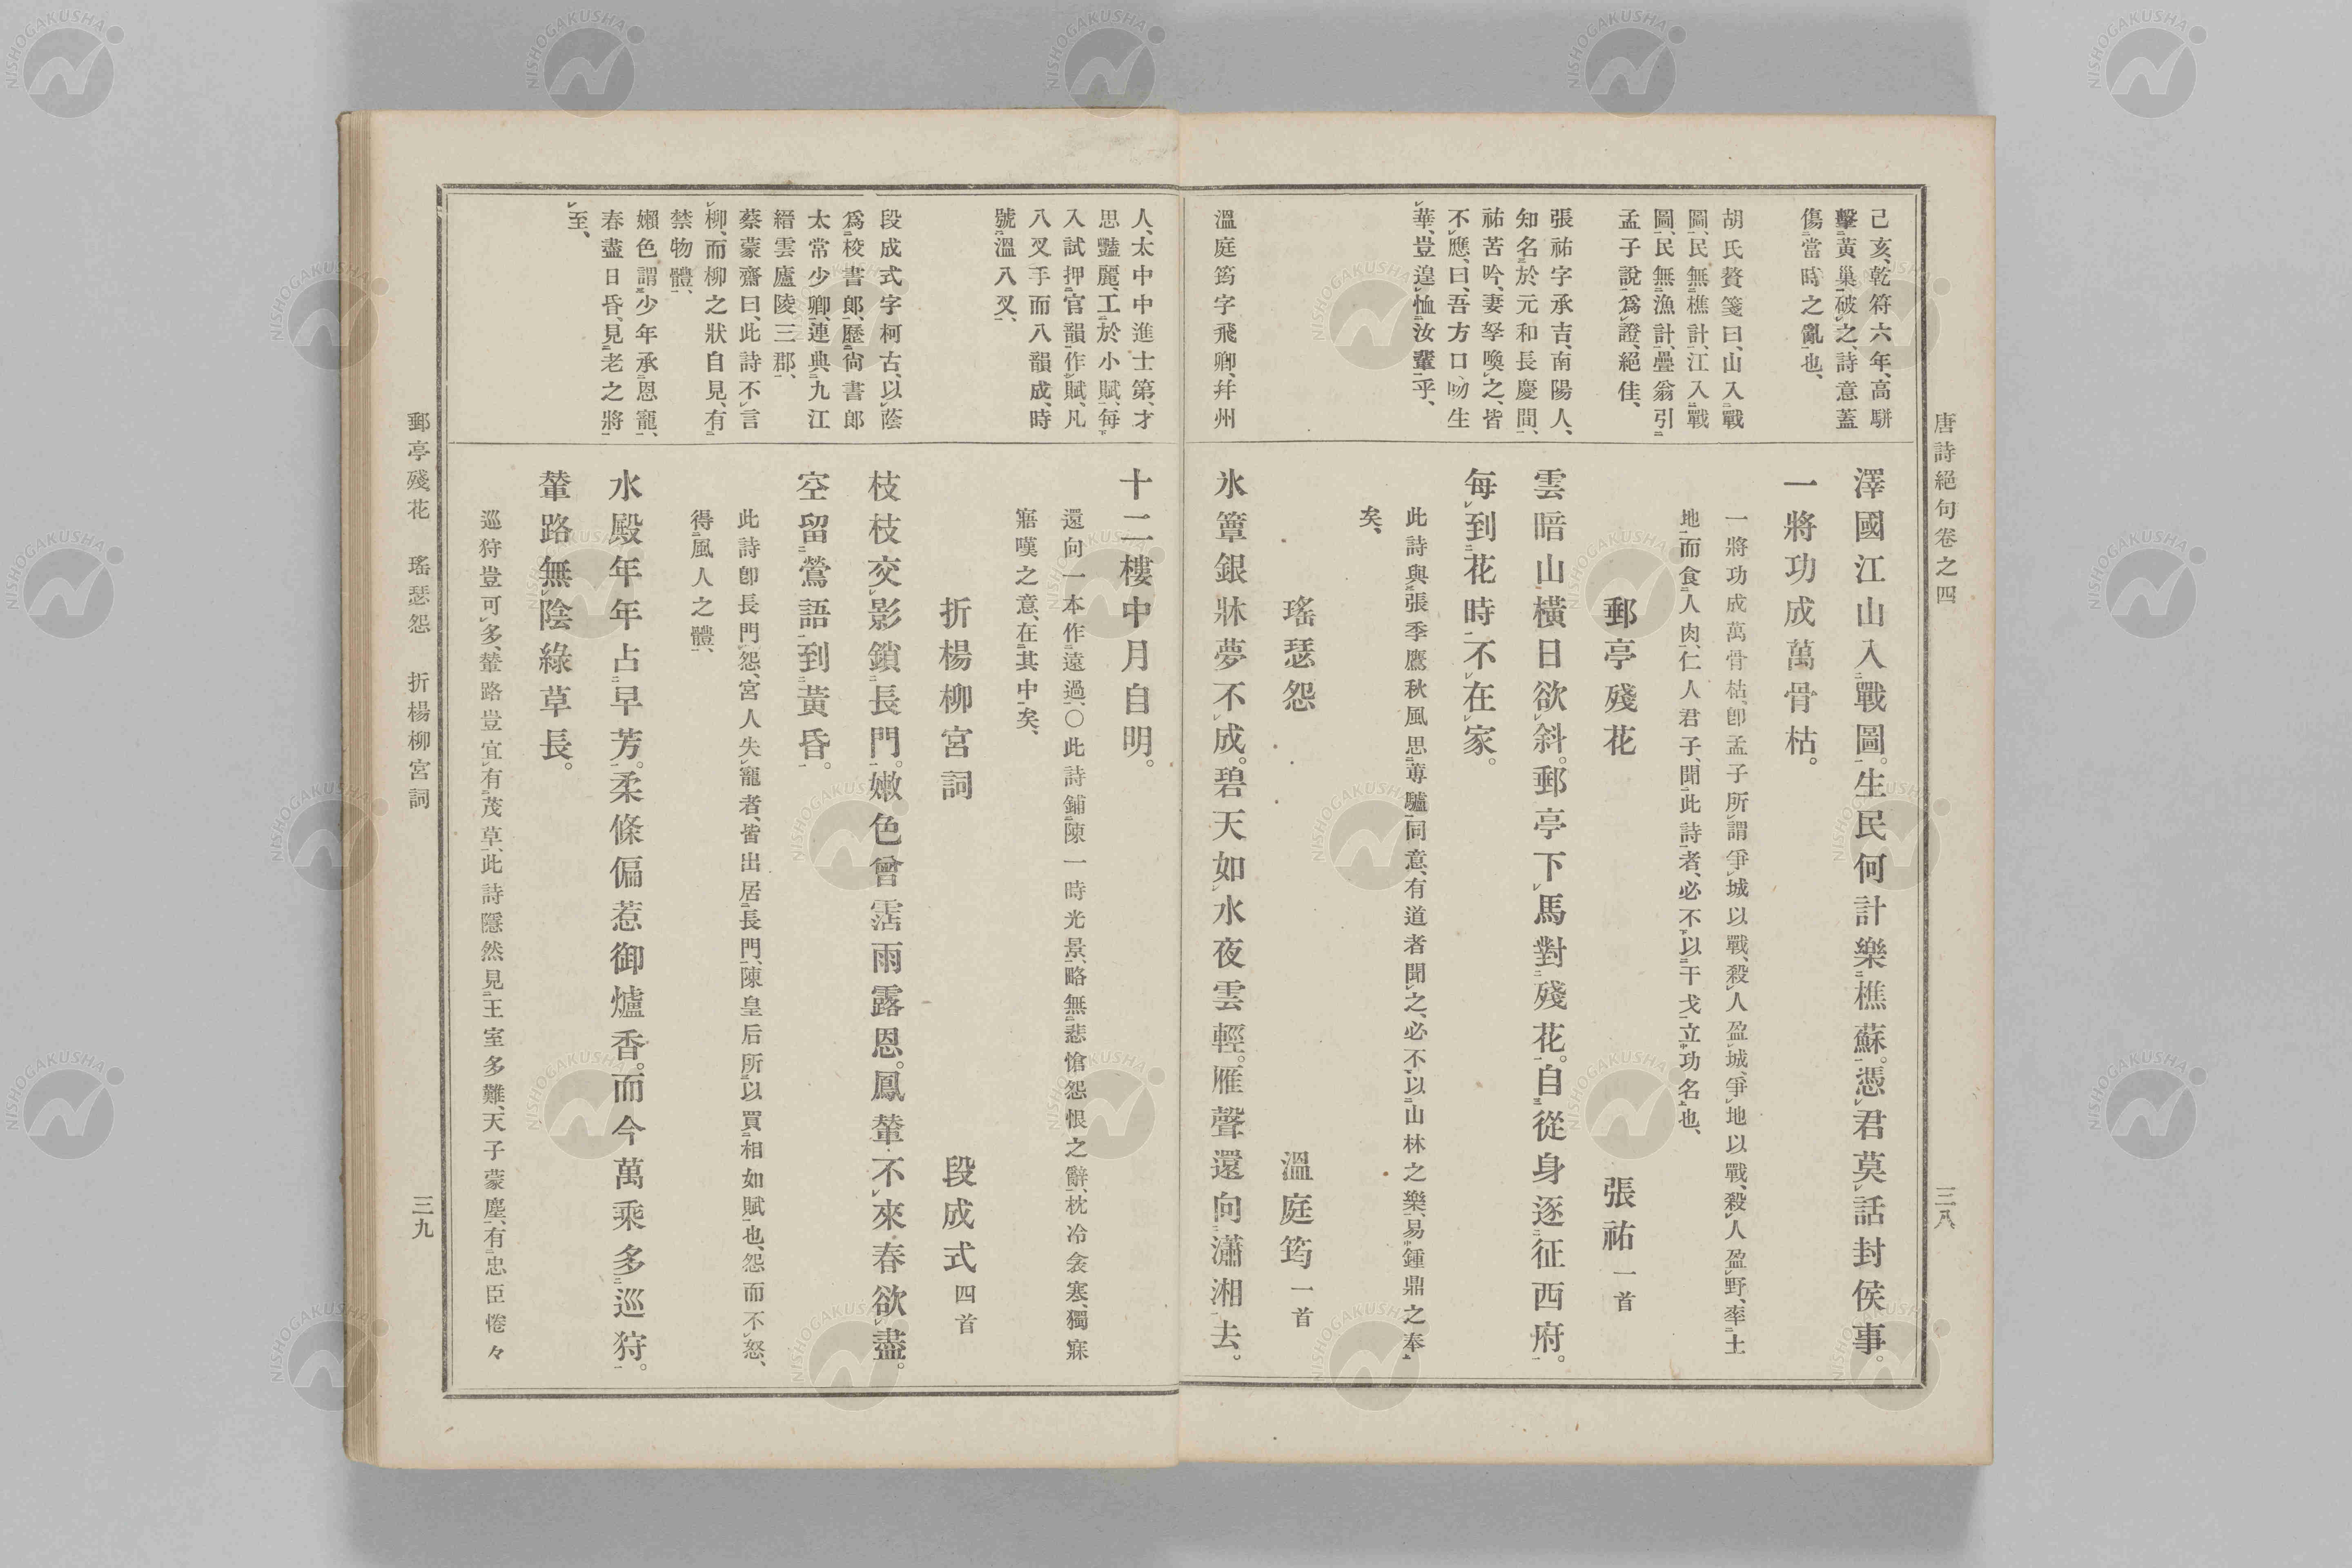 唐詩絕句卷之四
三八
己亥、乾符六年、高駢
擊黃巢破之、詩意蓋
傷當時之亂也、
胡氏贅箋曰、山入戰
圖、民無樵計、江入戰
圖、民無漁計、疊翁引
孟子說爲證、絕佳、
張祜字承吉、南陽人、
知名於元和長慶間、
祜苦吟、妻孥喚之、皆
不應、曰、吾方口吻生
華、豈遑恤汝輩乎、
溫庭筠字飛卿、幷州
澤國江山入戰圖。生民何計樂樵蘇。憑君莫話封侯事。
一將功成萬骨枯。
一將功成萬骨枯、卽孟子所謂爭城以戰、殺人盈城、爭地以戰、殺人盈野、率土
地而食人肉、仁人君子、聞此詩者、必不以干戈立功名也、
郵亭殘花
張祜 一首
雲暗山橫日欲斜。郵亭下馬對殘花。自從身逐征西府。
每到花時不在家。
此詩與張季鷹秋風思蓴鱸同意、有道者聞之、必不以山林之樂、易鍾鼎之奉
矣、
瑤瑟怨
溫庭筠 一首
氷簟銀牀夢不成。碧天如水夜雲輕。雁聲還向瀟湘去。
人、太中中進士第、才
思豔麗、工於小賦、每
入試押官韻作賦、凡
八叉手而八韻成、時
號溫八叉、
段成式字柯古、以蔭
爲校書郞、歷尙書郞
太常少卿、連典九江
縉雲廬陵三郡、
蔡蒙齋曰、此詩不言
柳、而柳之狀自見、有
禁物體、
嬾色謂少年承恩寵、
春盡日昏、見老之將
至、
十二樓中月自明。
還向一本作遠過、〇此詩鋪陳一時光景、略無悲愴怨恨之辭、枕冷衾寒、獨寐
寤嘆之意、在其中矣、
折楊柳宮詞
段成式 四首
枝枝交影鎖長門。嫩色曾霑雨露恩。鳳輦不來春欲盡。
空留鶯語到黃昏。
此詩卽長門怨、宮人失寵者、皆出居長門、陳皇后所以買相如賦也、怨而不怒、
得風人之體、
水殿年年占早芳。柔條偏惹御爐香。而今萬乘多巡狩。
輦路無陰綠草長。
巡狩豈可多、輦路豈宜有茂草、此詩隱然見王室多難、天子蒙塵、有忠臣惓々
郵亭殘花 瑤瑟怨 折楊柳宮詞
三九